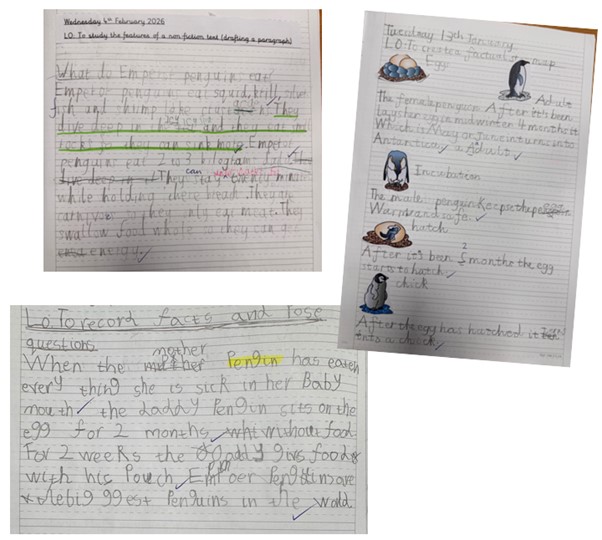 Wednesday 4th February 2026
LO: To study the features of a non fiction text (drafting a paragraph)
What do Emperor penguins eat?
Emperor penguins eat squid, krill, silver
fish and shrimp like They
dive deep in and they eat
rocks so they can sink more. Emperor
penguins eat 2 to 3 kilograms
They can stay twenty minutes
while holding there breath. They are
carnivores They only eat meat. They
swallow food whole so they can get
energy.
Tuesday 13th January
LO: To create a factual map
Egg
Adult
The female penguin
lays her egg in midwinter
Which is May or June
Antarctica
After it's been
4 months it
turns into
a Adult
Incubation
The male penguin keeps the
Warm and safe.
hatch
After it's been 2 months the egg
starts to hatch
chick
After the egg has hatched it
into a chick.
LO: To record facts and Pose
questions
When the mother Pengin has eaten
every thing she is sick in her Baby
mouth the daddy Pengun sits on the
egg for 2 months without food.
For 2 weeks the daddy givs food
with his Pouch Pengiins are
biggest Penguins in the world